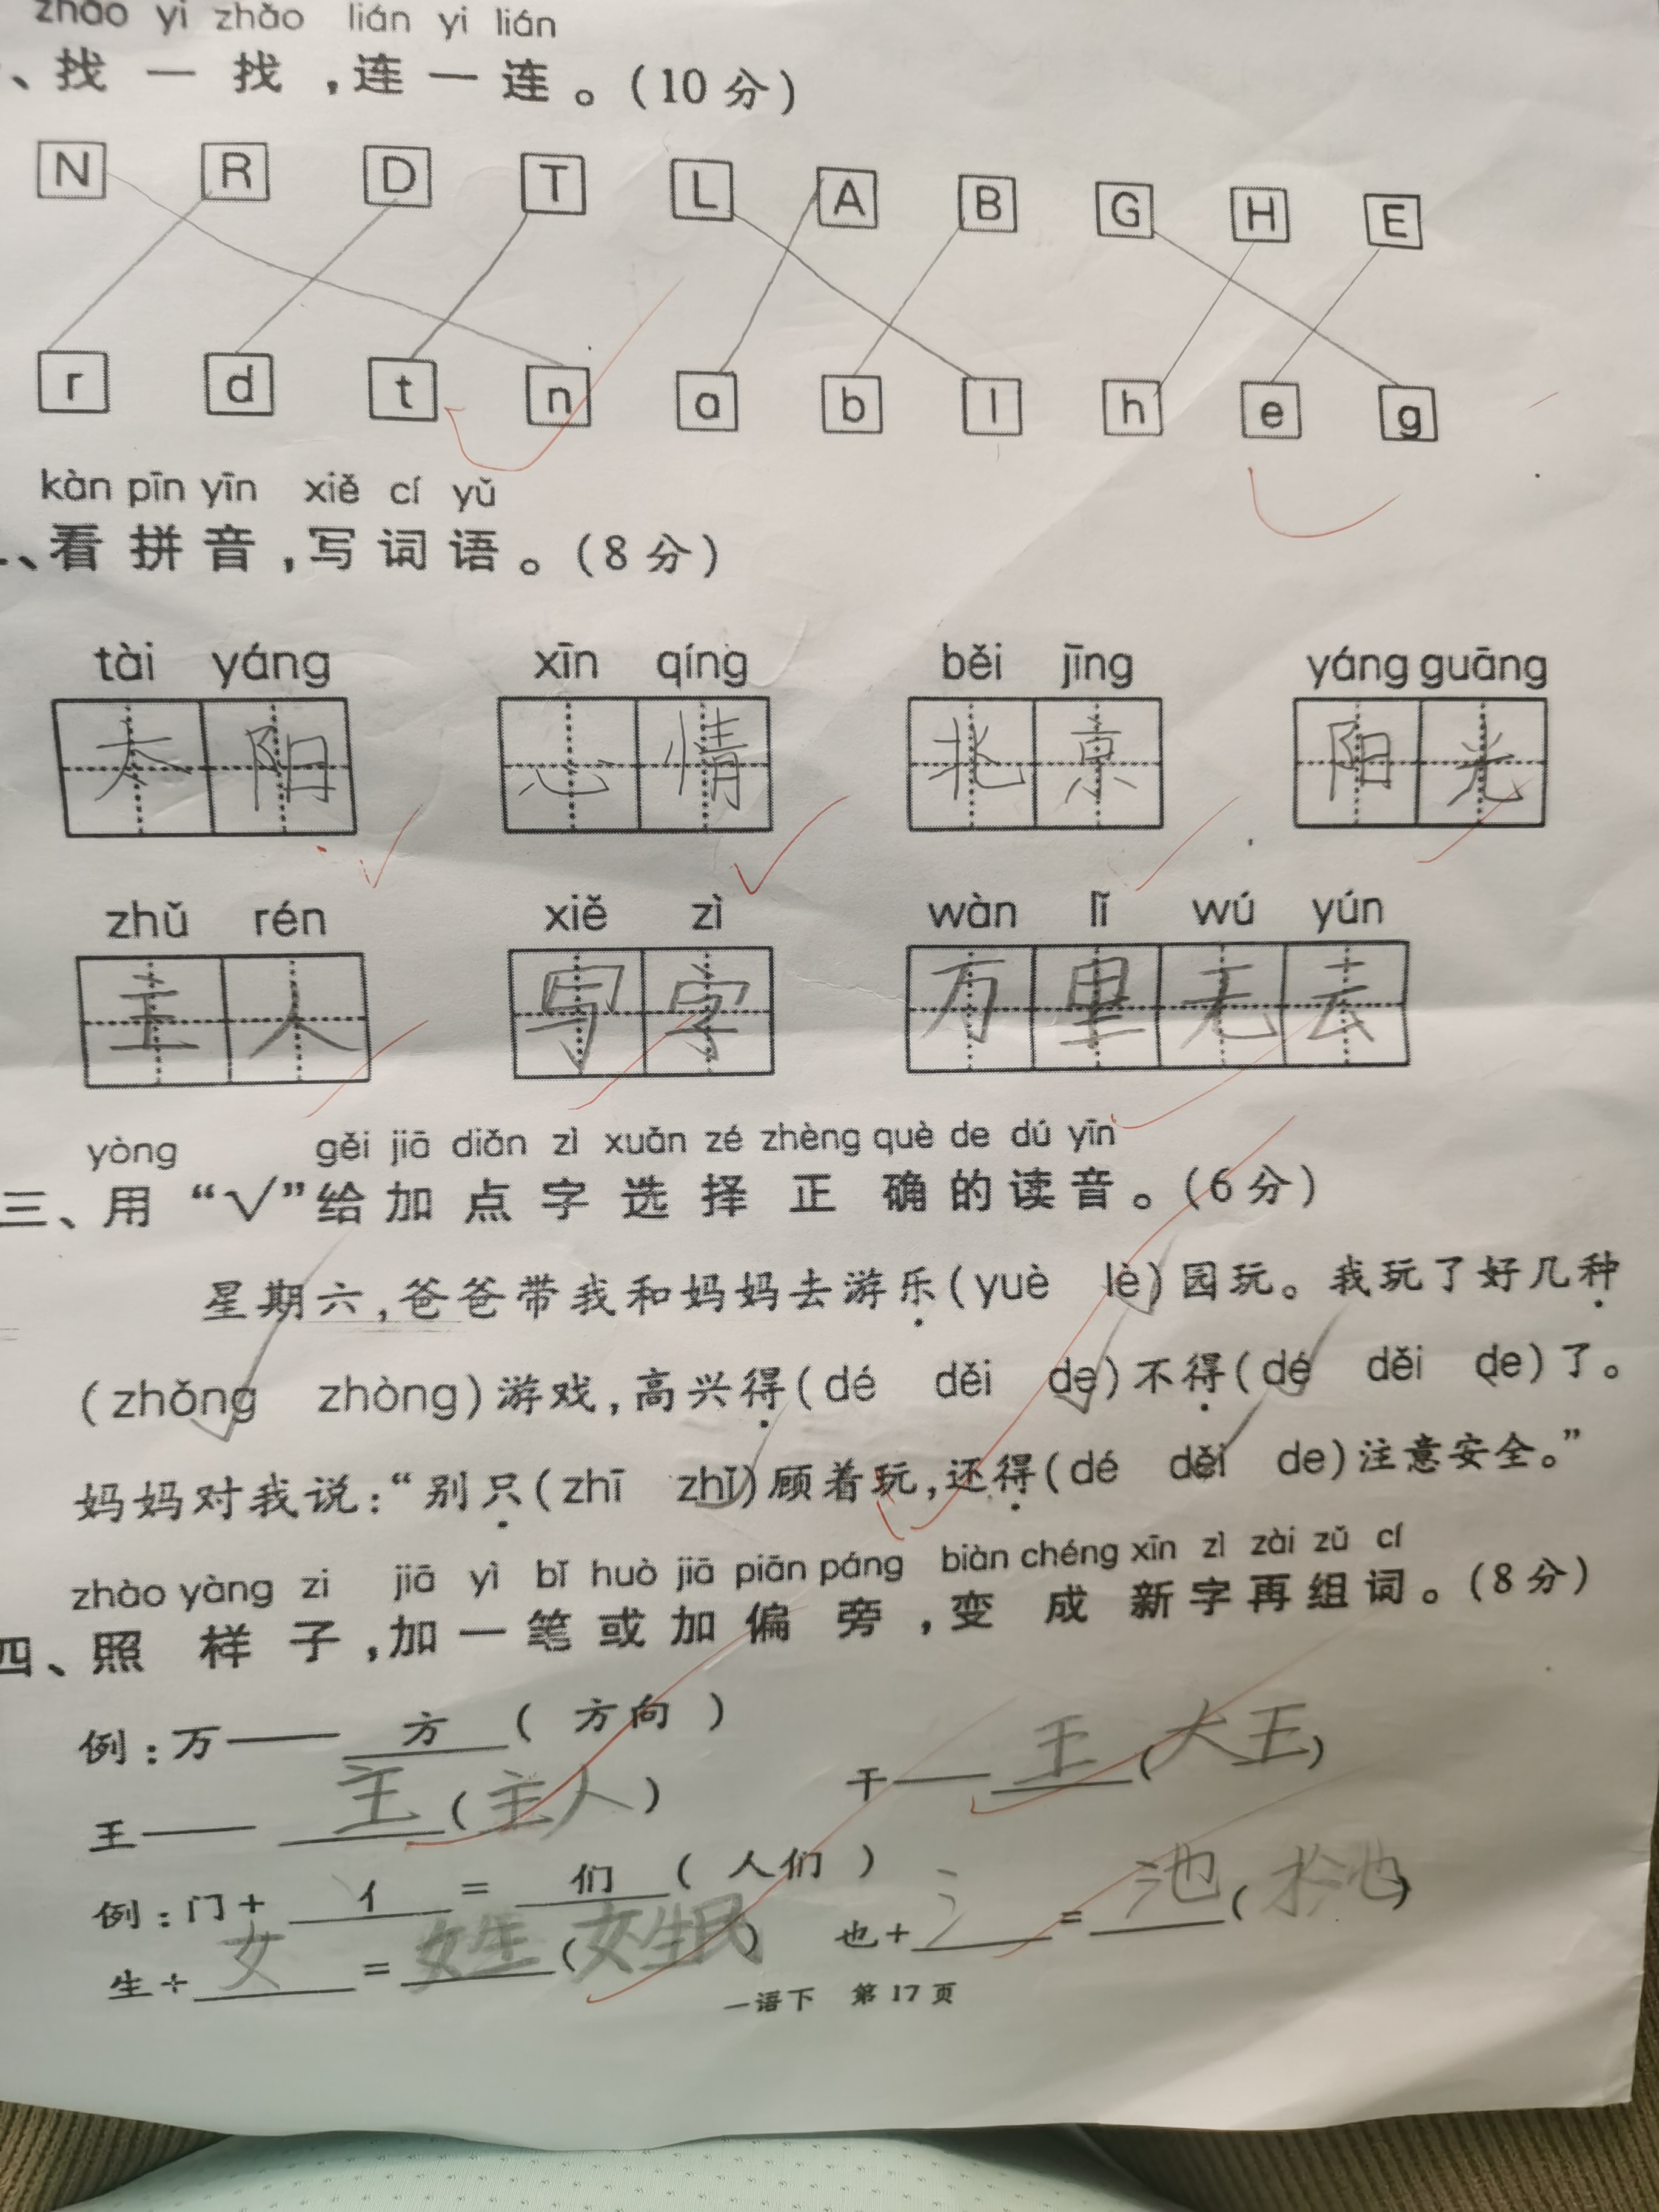 zhǎo yi zhǎo lián yi lián
、找一找,连一连。(10分)
N R D T L A B G H E
r d t n a b l h e g
kàn pīn yīn xiě cí yǔ
、看拼音,写词语。(8分)
tài yáng xīn qíng běi jīng yáng guāng
太阳 心情 北京 阳光
zhǔ rén xiě zì wàn lǐ wú yún
主人 写字 万里无云
yòng gěi jiā diǎn zì xuǎn zé zhèng què de dú yīn
三、用“√”给加点字选择正确的读音。(6分)
星期六,爸爸带我和妈妈去游乐(yuè lè)园玩。我玩了好几种
(zhǒng zhòng)游戏,高兴得(dé děi de)不得(dé děi de)了。
妈妈对我说:“别只(zhī zhǐ)顾着玩,还得(dé děi de)注意安全。”
zhào yàng zi jiā yì bǐ huò jiā piān páng biàn chéng xīn zì zài zǔ cí
四、照样子,加一笔或加偏旁,变成新字再组词。(8分)
例:万—— 方 ( 方向 )
王—— 主 (主人) 干—— 王 (大王)
例:门+ 亻 = 们 ( 人们 )
生+ 女 = 姓 (姓民) 也+ 氵 = 池 ( 池)
一语下 第17页